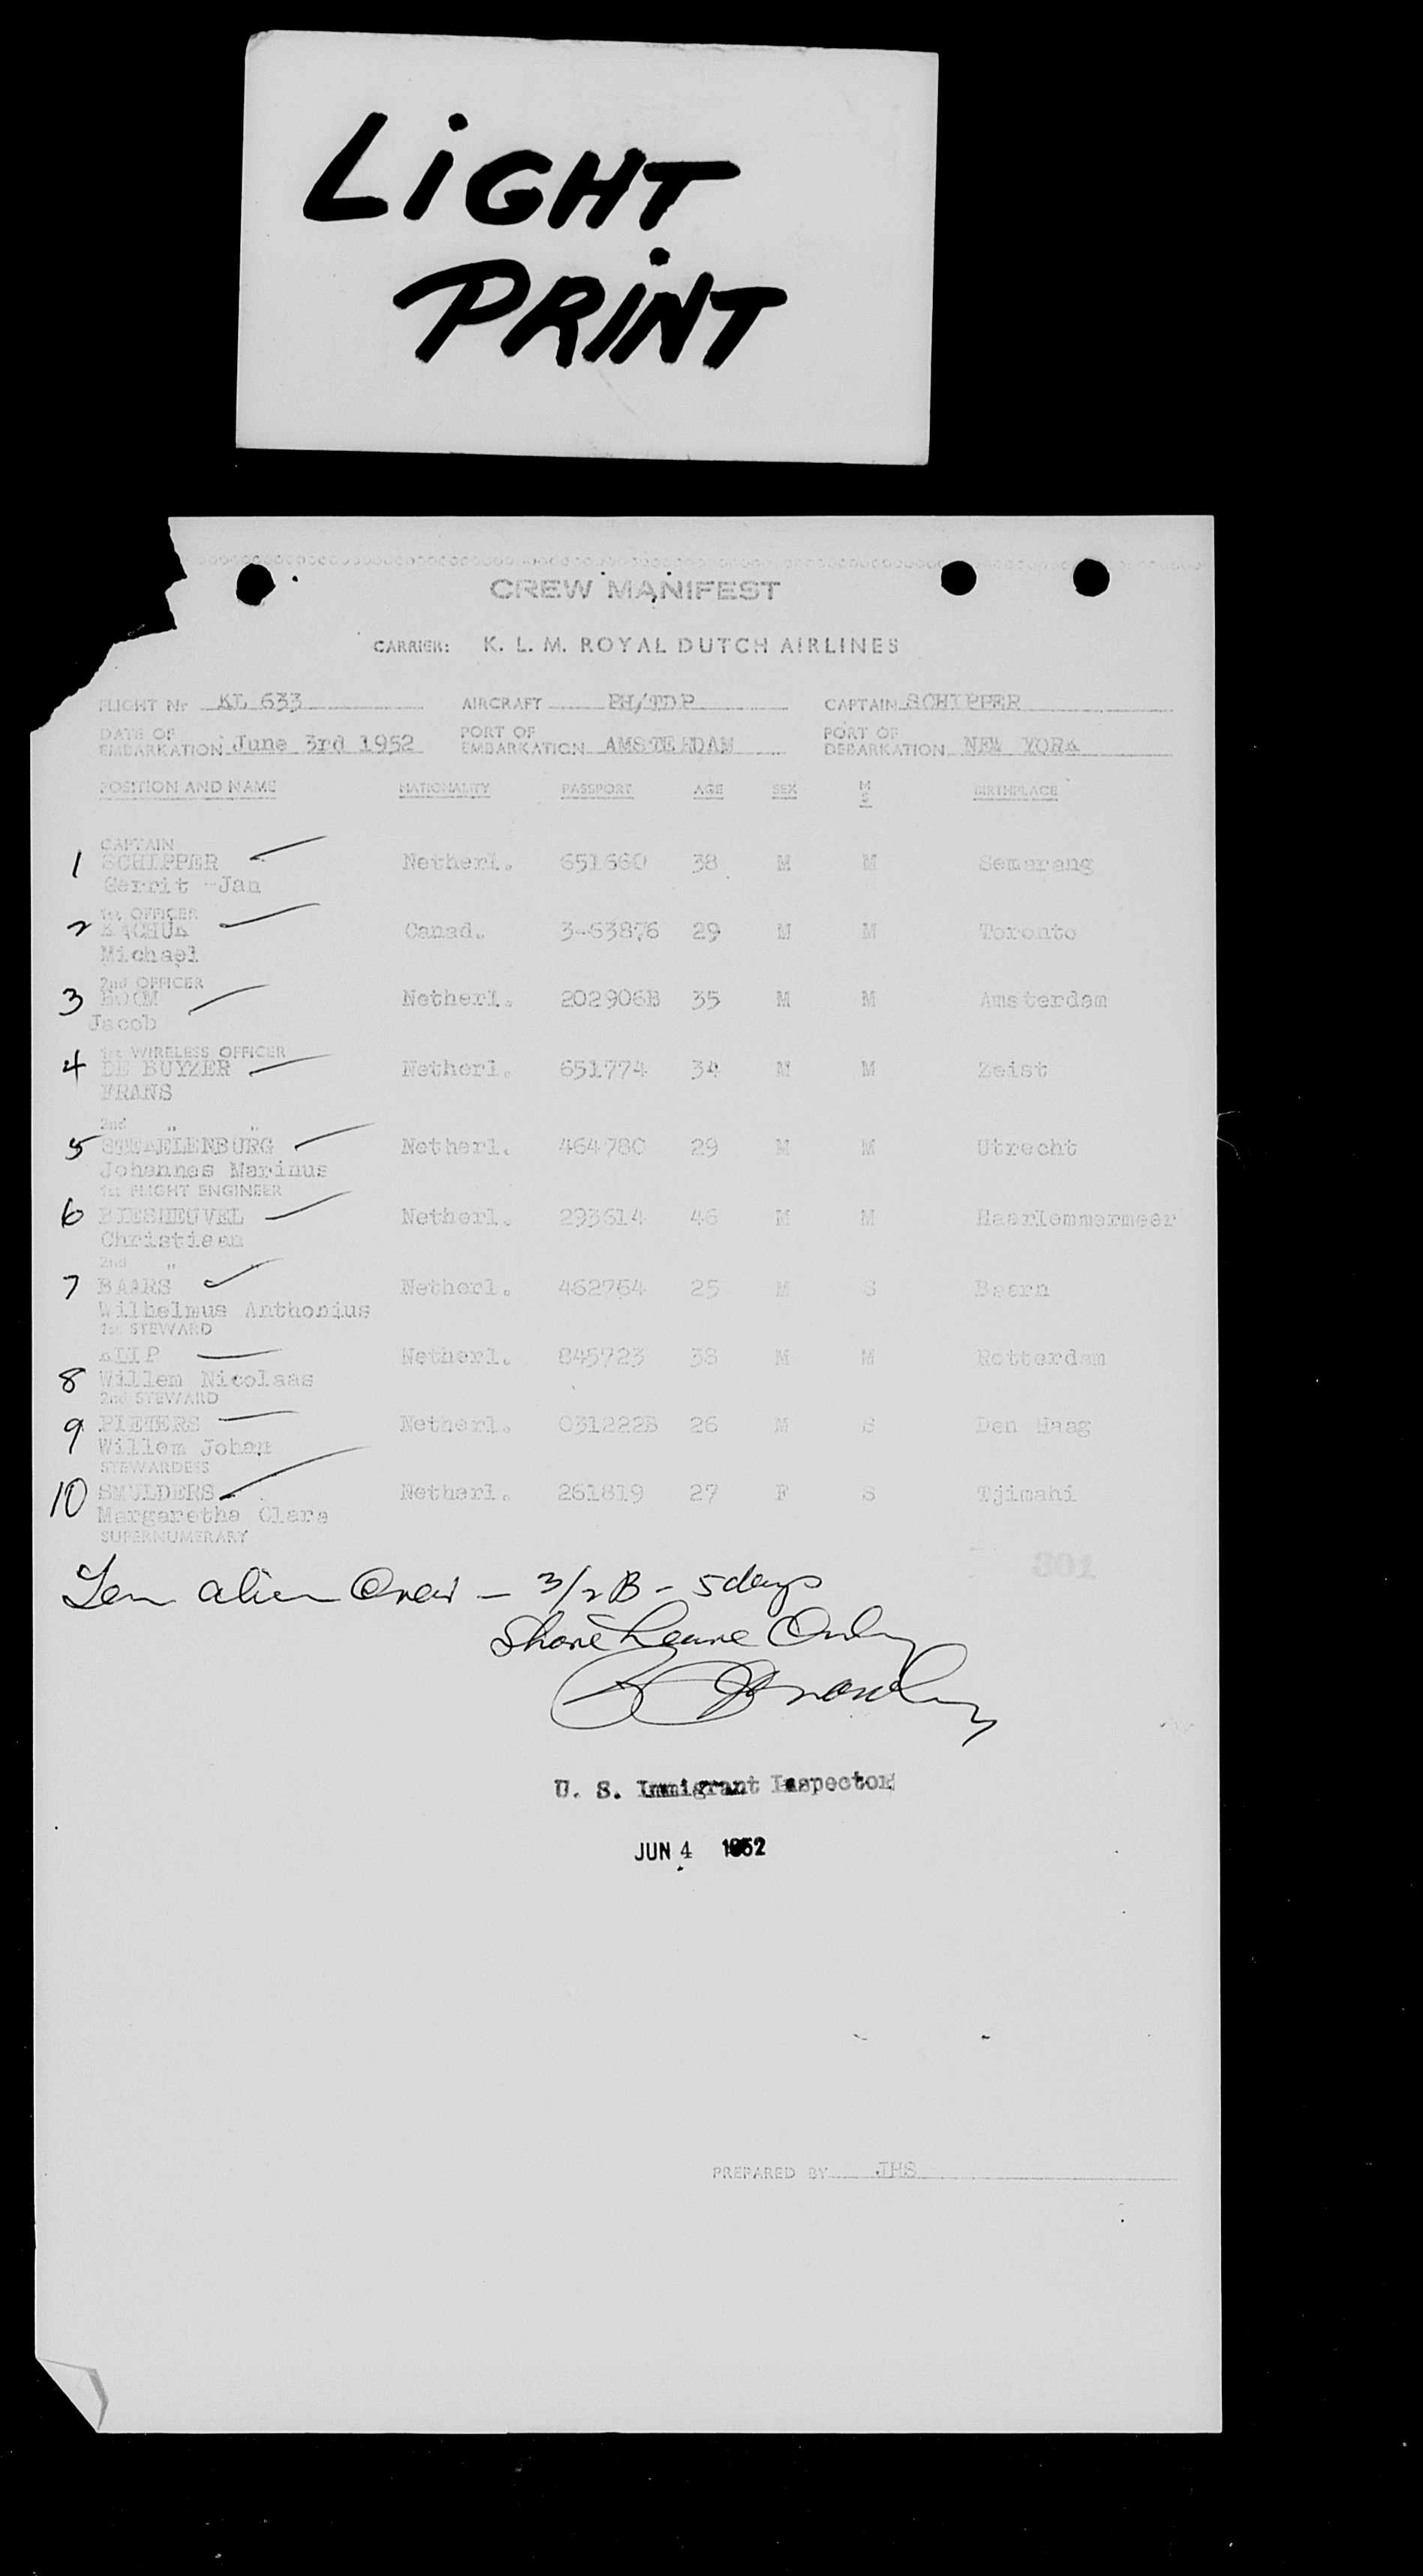 LiGHT
PRiNT
CREW MANIFEST
CARRIER: K. L. M. ROYAL DUTCH AIRLINES
FLIGHT Nr KL 633 AIRCRAFT PH/TDP CAPTAIN SCHIPPER
DATE OF EMBARKATION June 3rd 1952 PORT OF EMBARKATION AMSTERDAM PORT OF DEBARKATION NEW YORK
POSITION AND NAME NATIONALITY PASSPORT AGE SEX M S BIRTHPLACE
CAPTAIN
1 SCHIPPER Netherl. 651660 38 M M Semarang
Gerrit -Jan
1st OFFICER
2 KACHUK Canad. 3-63876 29 M M Toronto
Michael
2nd OFFICER
3 BOOM Netherl. 202906B 35 M M Amsterdam
Jacob
1st WIRELESS OFFICER
4 DE BUYZER Netherl. 651774 34 M M Zeist
FRANS
2nd " "
5 Netherl. 464780 29 M M Utrecht
Johannes Marinus
1st FLIGHT ENGINEER
6 BIESHEUVEL Netherl. 293614 46 M M Haarlemmermeer
Christiaan
2nd " "
7 BAARS Netherl. 462764 25 M S Baarn
Wilhelmus Anthonius
1st STEWARD
Netherl. 845723 38 M M Rotterdam
8 Willem Nicolaas
2nd STEWARD
9 PIETERS Netherl. 031222B 26 M S Den Haag
Willem Johan
STEWARDESS
10 SMULDERS Netherl. 261819 27 F S Tjimahi
Margaretha Clara
SUPERNUMERARY
301
Ten alien Crew - 3/2 B - 5 days
Shore Leave Only
U. S. Immigrant Inspector
JUN 4 1952
PREPARED BY JHS